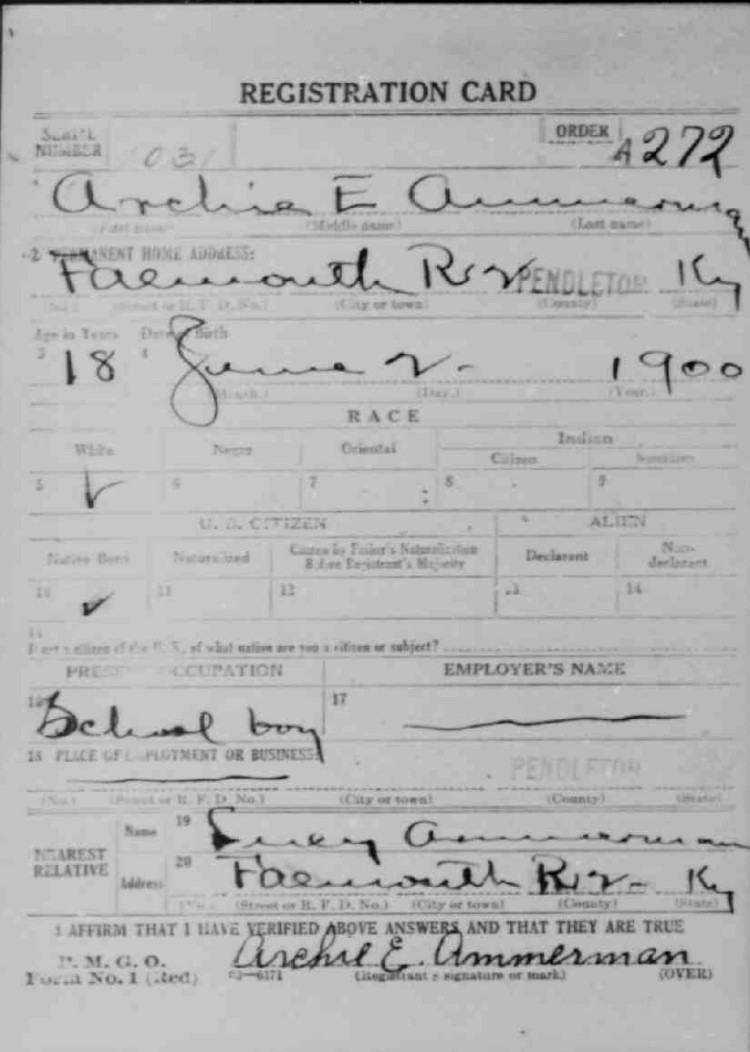 REGISTRATION CARD
SERIAL NUMBER 1031 ORDER A272
Archie E Ammerman
(First name) (Middle name) (Last name)
2 PERMANENT HOME ADDRESS:
Falmouth R 2 PENDLETON Ky
(No.) (Street or R. F. D. No.) (City or town) (County) (State)
Age in Years Date of Birth
3 18 4 June 2 - 1900
(Month.) (Day.) (Year.)
RACE
White Negro Oriental Indian
Citizen
5 6 7 8 9
U. S. CITIZEN ALIEN
Native Born Naturalized Citizen by Father's Naturalization Before Registrant's Majority Declarant Non-declarant
10 11 12 13 14
15
If not a citizen of the U. S., of what nation are you a citizen or subject?
PRESENT OCCUPATION EMPLOYER'S NAME
16 School boy 17
18 PLACE OF EMPLOYMENT OR BUSINESS:
PENDLETON
(No.) (Street or R. F. D. No.) (City or town) (County) (State)
NEAREST RELATIVE Name 19 Ammerman
Address 20 Falmouth R 2 - Ky
(No.) (Street or R. F. D. No.) (City or town) (County) (State)
I AFFIRM THAT I HAVE VERIFIED ABOVE ANSWERS AND THAT THEY ARE TRUE
P. M. G. O.
Form No. 1 (Red) 03—6171 Archie E. Ammerman
(Registrant's signature or mark) (OVER)